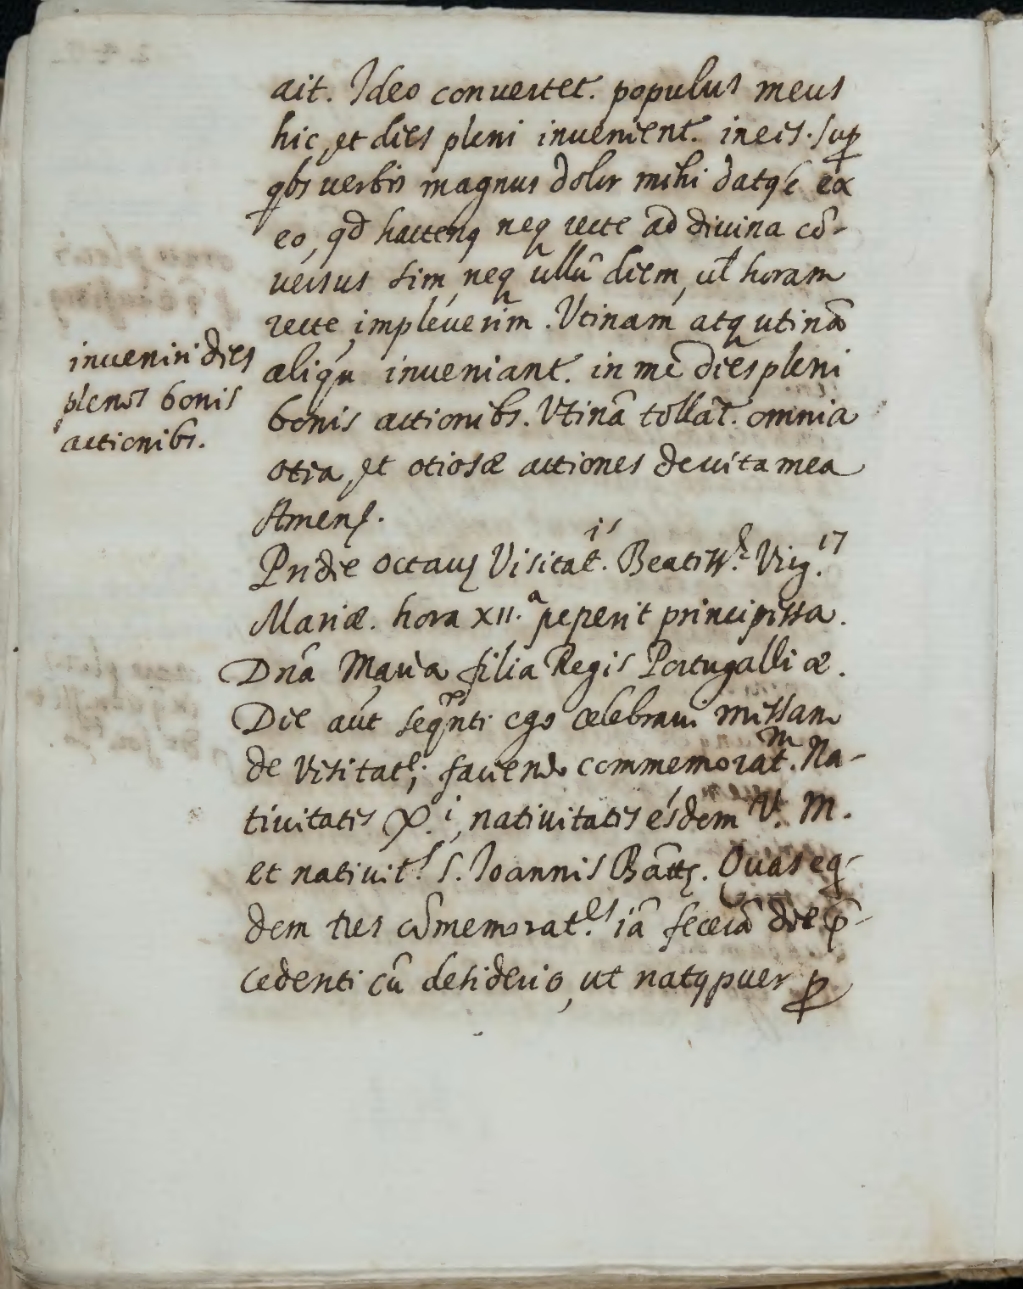 ait. Ideo convertet. populus meus
hic, et dies pleni invenient. in eis. Sup
qbs verbis magnus dolor mihi datq; ex
eo, qd hactenq neq recte ad divina cō-
versus sim, neq ullū diem, ul horam
recte impleverim. Utinam atq utinā
aliqn inveniant. in mē dies pleni
bonis actionibs. Utinā tollāt. omnia
otia, et otiosæ actiones de vita mea
Amen.
inveniri dies
plenos bonis
actionibs.
Pridie octavę Visitat.is Beatiss.ę Virg. 17
Mariæ. hora XII.a peperit principissa.
Dnā Maria filia Regis Portugalliæ.
Die aūt seqnti ego celebravi missam
de Visitatę; faciendo commemorat.m Na-
tivitatis X.i, nativitatis eisdem V. M.
et nativit.s S. Ioannis Bāttę. Quas eq-
dem tres cōmemorat.es iā fecerā die p̄-
cedenti cū desiderio, ut natq puer p